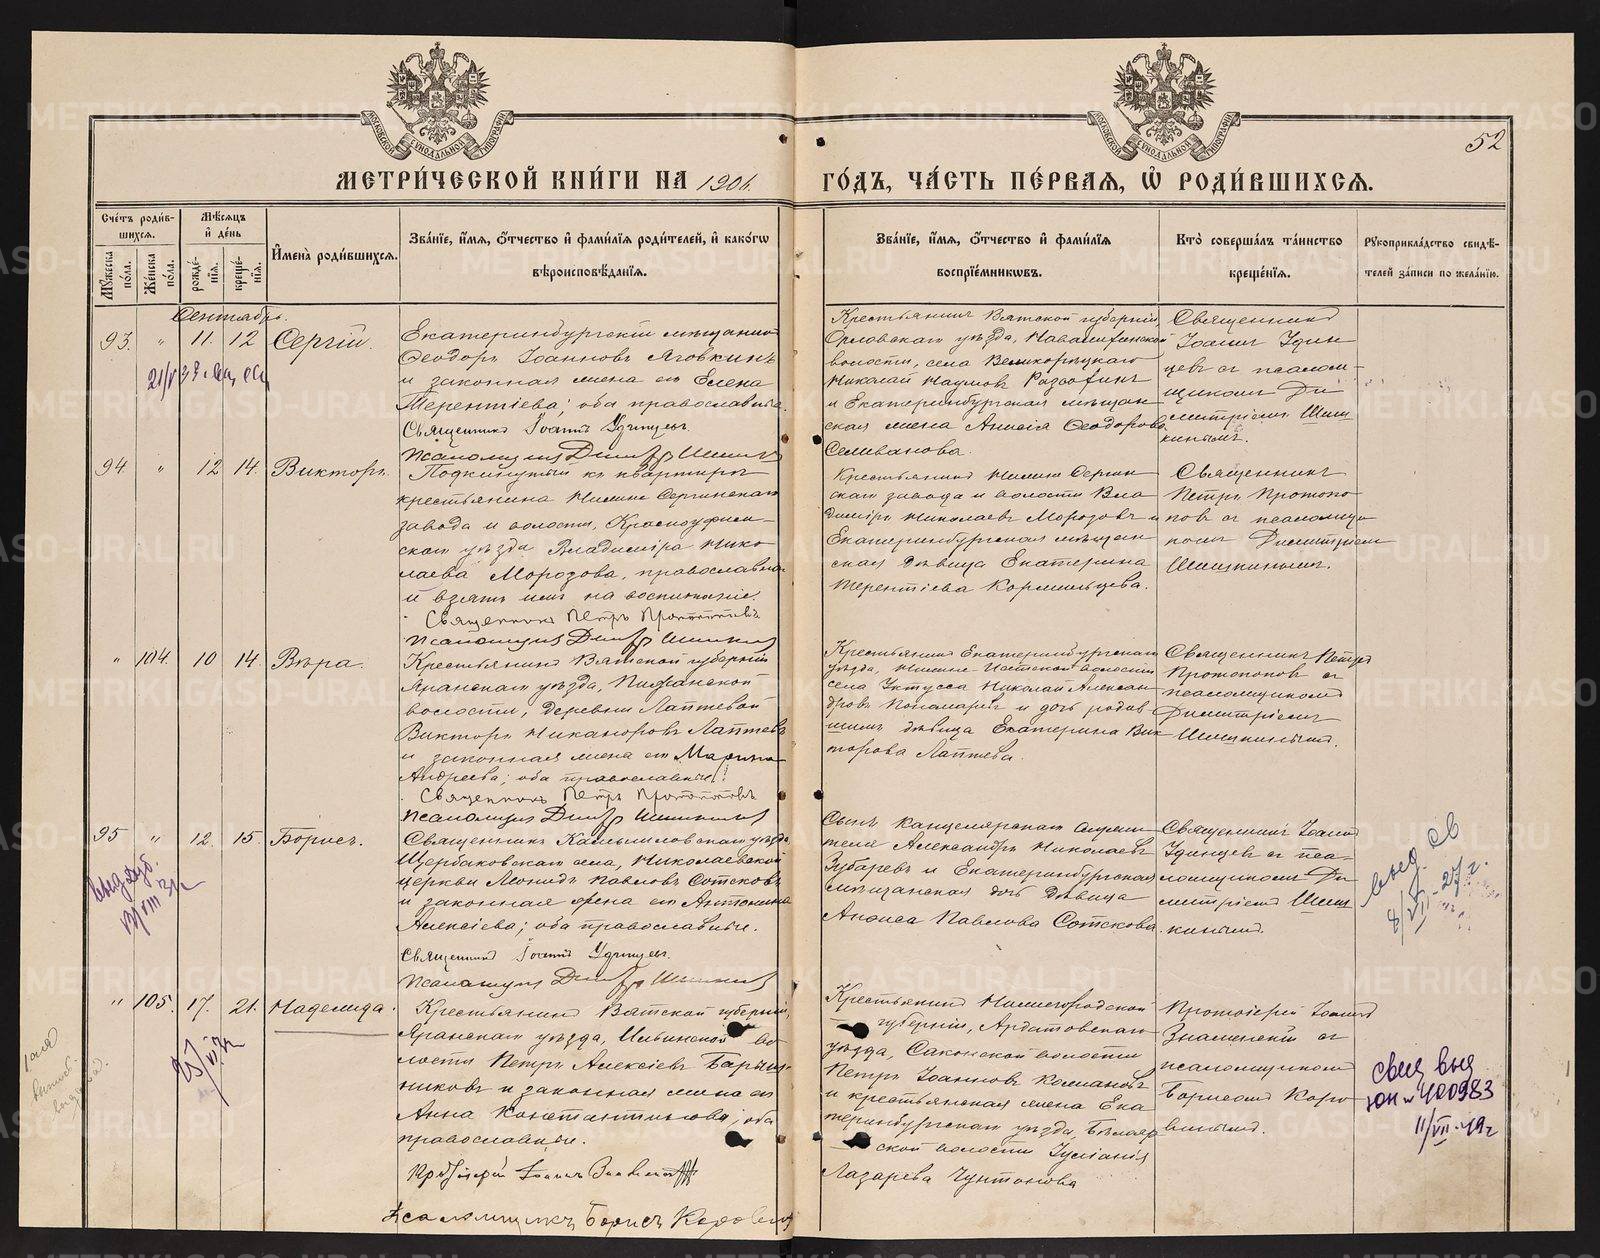 МЕТРИ́ЧЕСКОЙ КНИ́ГИ НА 1906.
ГО́ДЪ, ЧА́СТЬ ПЕ́РВАЯ, Ѡ РОДИ́ВШИХСЯ.
52
Сче́тъ роди́в-
шихся.
Мѣсяцъ
и де́нь
Мꙋ́жеска по́ла.
Же́нска по́ла.
рожде́-
нїя.
креще́-
нїя.
И҆мена̀ роди́вшихся.
Зва́нїе, и҆́мя, ѻ҆́тчество и҆ фами́лїя роди́телей, и҆ како́гѡ
вѣроисповѣ́данїя.
Зва́нїе, и҆́мя, ѻ҆́тчество и҆ фами́лїя
воспрїе́мникѡвъ.
Кто̀ соверша́лъ та́инство
креще́нїя.
Рꙋкоприкла́дство свидѣ́-
телей за́писи по жела́нїю.
Сентябрь.
93. " 11. 12 Сергій.
Екатеринбургскій мѣщанинъ
Ѳеодоръ Іоанновъ Яговкинъ
и законная жена его Елена
Терентіева; оба православные.
Священникъ Іоаннъ Удинцевъ.
Псаломщикъ Дим. Шишкинъ
Крестьянинъ Вятской губерніи,
Орловскаго уѣзда,
волости, села Великорѣцкаго
Николай Наумовъ
и Екатеринбургская мѣщан
ская жена Анисія Ѳеодорова
Селиванова.
Священникъ
Іоаннъ Удин
цевъ съ псалом-
щикомъ Ди
митріемъ Шиш
кинымъ.
94 " 12 14. Викторъ.
Подкинутый къ квартирѣ
крестьянина Нижне Сергинскаго
завода и волости, Красноуфим-
скаго уѣзда Владиміра Нико
лаева Морозова, православна
и взятъ имъ на воспитаніе.
Священникъ Петръ Протопоповъ
Псаломщикъ Дим. Шишкинъ
Крестьянинъ Нижне Сергин
скаго завода и волости Вла
диміръ Николаевъ Морозовъ и
Екатеринбургская мѣщан
ская дѣвица Екатерина
Терентіева Кормильцева.
Священникъ
Петръ Протопо
повъ съ псаломщи
комъ Димитріемъ
Шишкинымъ.
" 104. 10 14. Вѣра.
Крестьянинъ Вятской губерніи
Яранскаго уѣзда, Пижанской
волости, деревни Лаптевой
Викторъ Никаноровъ Лаптевъ
и законная жена его Марина
Андреева; оба православные.
Священникъ Петръ Протопоповъ
Псаломщикъ Дим. Шишкинъ
Крестьянинъ Екатеринбургскаго
уѣзда, Нижне-Исетской волости
села Уктусса Николай Алексан
дровъ Пономаревъ и дочь родив
шимъ дѣвица Екатерина Вик
торова Лаптева.
Священникъ Петръ
Протопоповъ съ
псаломщикомъ
Димитріемъ
Шишкинымъ.
95 " 12. 15. Борисъ.
Священникъ Камышловскаго уѣзда
Щербаковскаго села, Николаевской
церкви Леонидъ Павловъ Сотсковъ
и законная жена его Антонина
Алексіева; оба православные.
Священникъ Іоаннъ Удинцевъ.
Псаломщикъ Дим. Шишкинъ
Сынъ канцелярскаго служи
теля Александръ Николаевъ
Зубаревъ и Екатеринбургская
мѣщанская дочь дѣвица
Анѳиса Павлова Сотскова.
Священникъ Іоаннъ
Удинцевъ съ пса-
ломщикомъ Ди
митріемъ Шиш
кинымъ.
выд. св
8/VII-27г.
" 105. 17. 21. Надежда.
Крестьянинъ Вятской губерніи,
Яранскаго уѣзда, Ильинской во
лости Петръ Алексіевъ Барыш
никовъ и законная жена его
Анна Константинова, оба
православные.
Протоіерей Іоаннъ Знаменскій
Псаломщикъ Борисъ Коровинъ
Крестьянинъ Нижегородской
губерніи, Ардатовскаго
уѣзда, Саконской волости
Петръ Іоанновъ Колпановъ
и крестьянская жена Ека
теринбургскаго уѣзда, Бѣлояр
ской волости Іуліанія
Лазарева Чунтонова
Протоіерей Іоаннъ
Знаменскій съ
псаломщикомъ
Борисомъ Коро
винымъ.
свид выд
ЮН № 400983
11/VII-49г